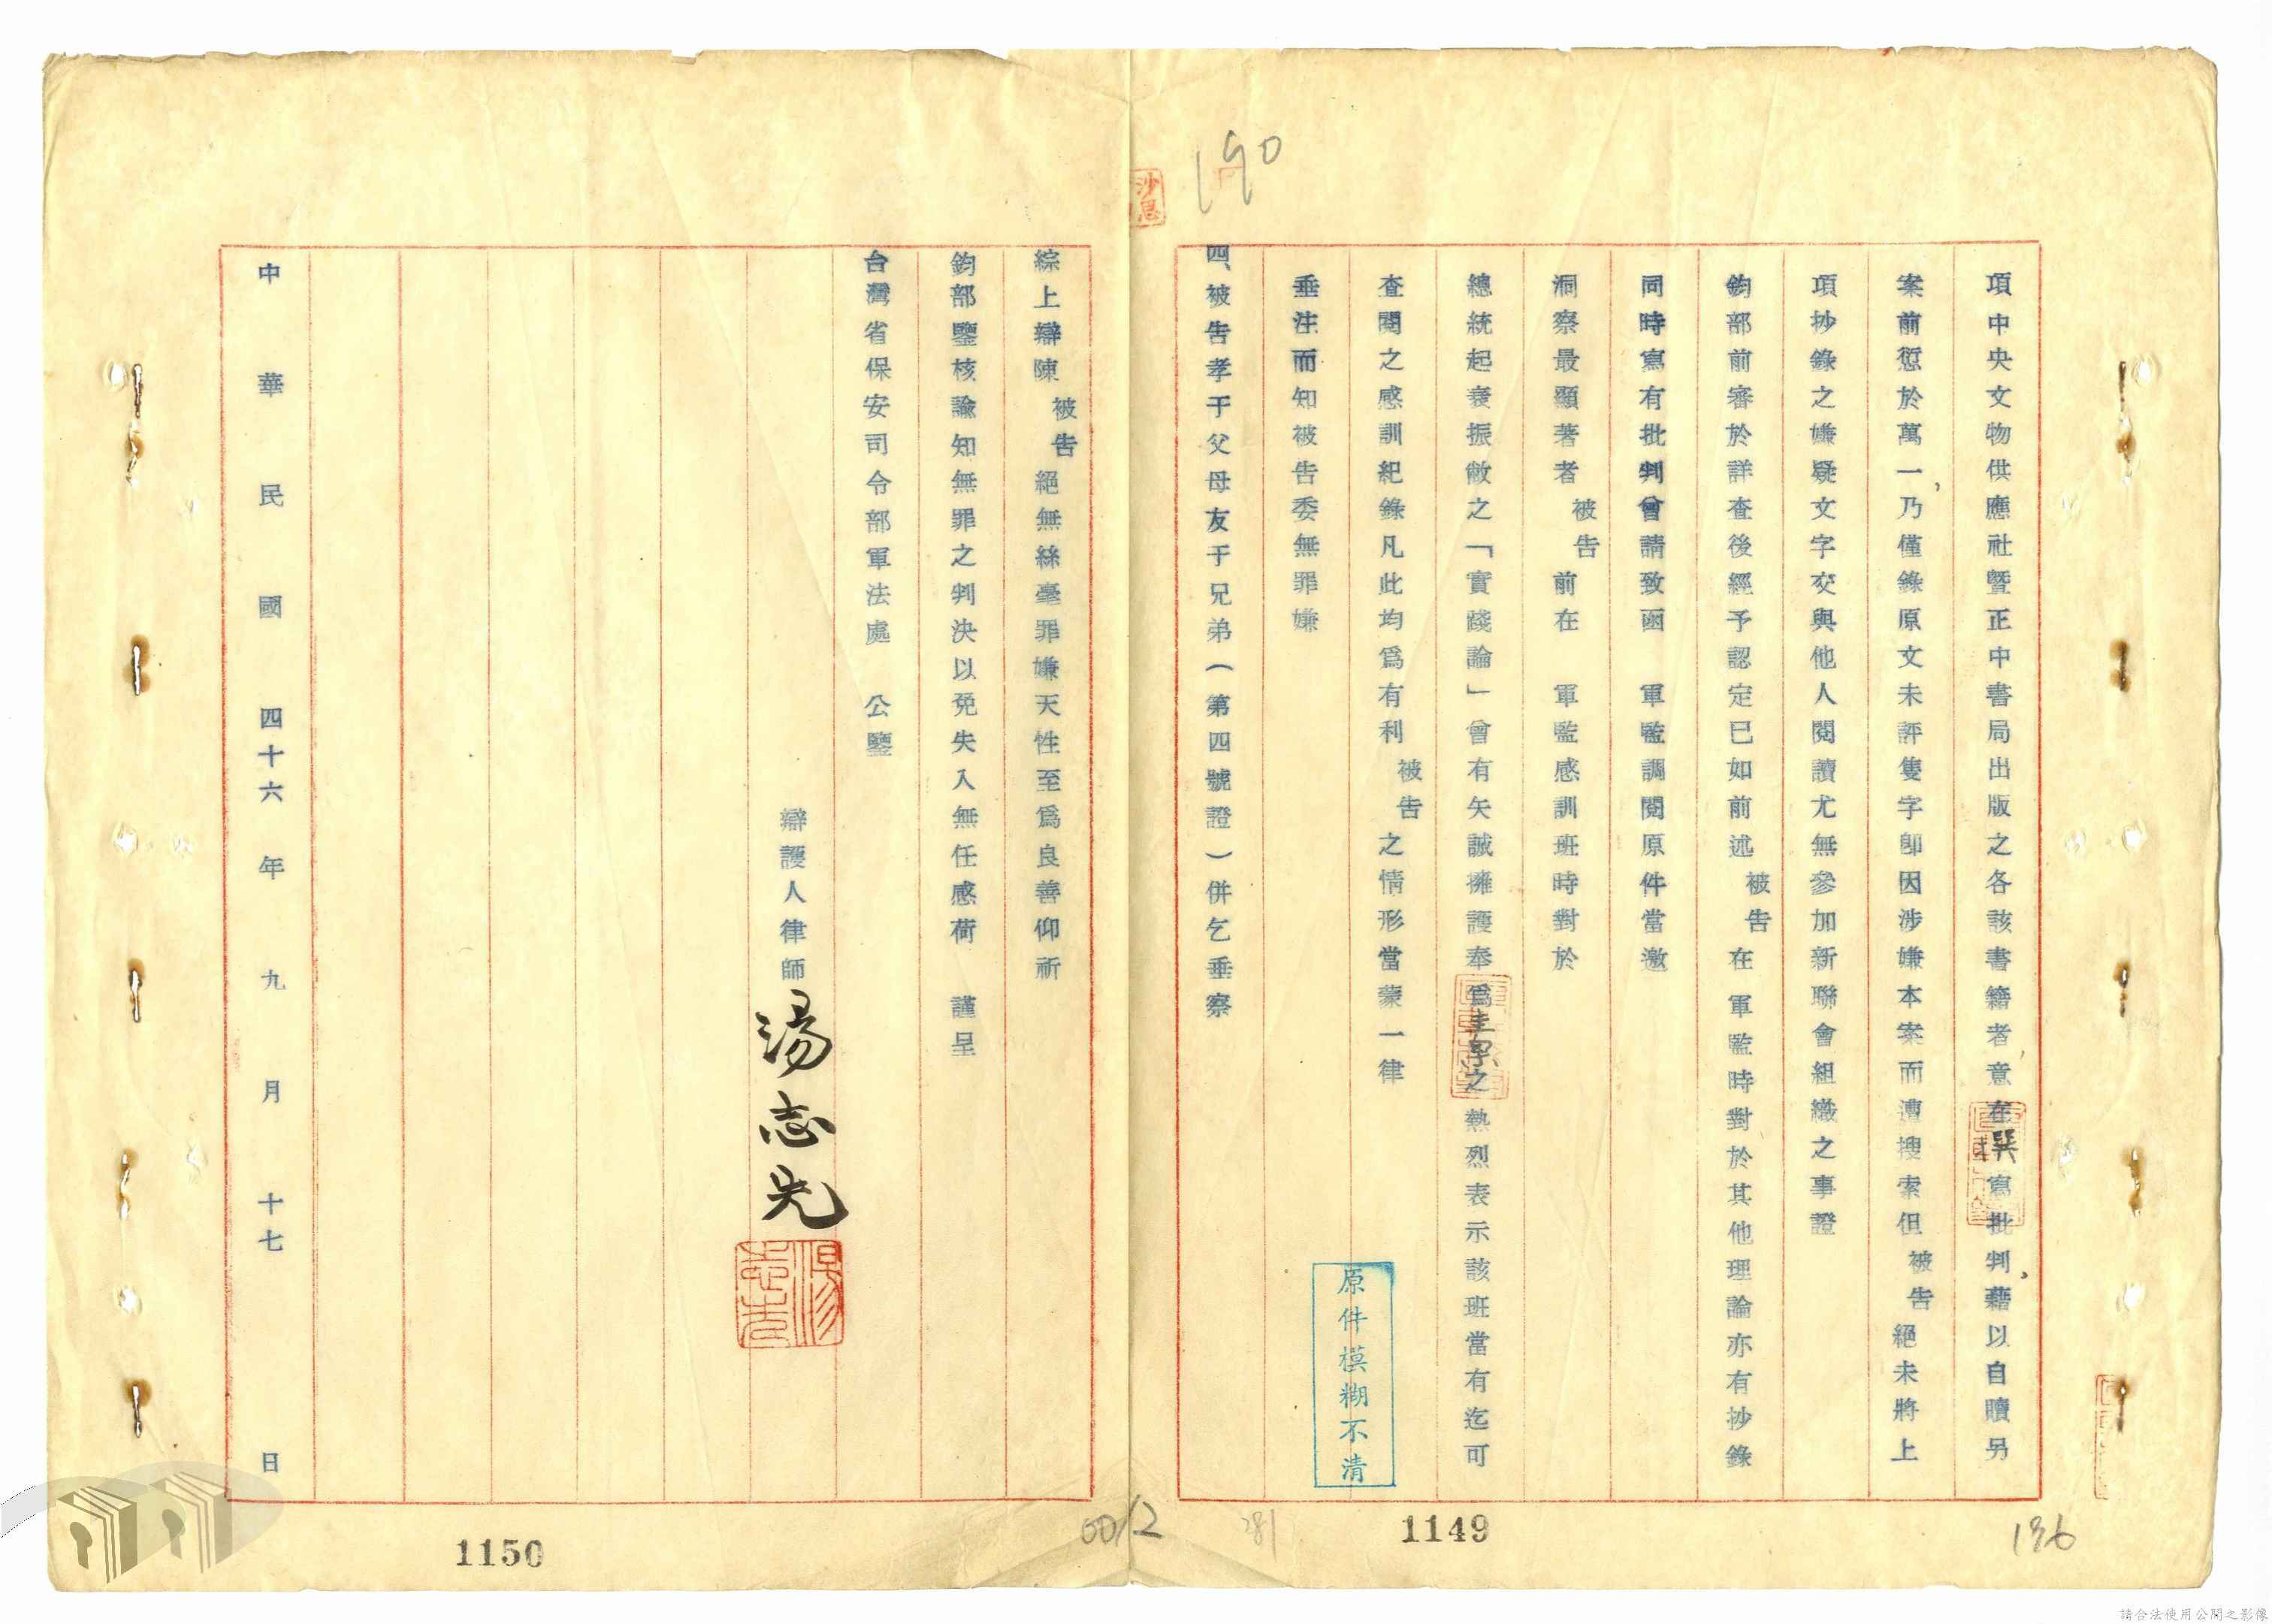 190
項中央文物供應社暨正中書局出版之各該書籍者意在撰寫批判藉以自贖另
案前愆於萬一，乃僅錄原文未評隻字卽因涉嫌本案而遭搜索但被告絕未將上
項抄錄之嫌疑文字交與他人閱讀尤無參加新聯會組織之事證
鈞部前審於詳查後經予認定已如前述被告在　軍監時對於其他理論亦有抄錄
同時寫有批判曾請致函　軍監調閱原件當邀
洞察最顯著者被告前在　軍監感訓班時對於
總統起衰振敝之「實踐論」曾有矢誠擁護奉爲圭臬之熱烈表示該班當有迄可
查閱之感訓紀錄凡此均爲有利被告之情形當蒙一律
垂注而知被告委無罪嫌
四、被告孝于父母友于兄弟（第四號證）併乞垂察
原件模糊不清
1149
136
281
綜上辯陳被告絕無絲毫罪嫌天性至爲良善仰祈
鈞部鑒核諭知無罪之判決以免失入無任感荷　謹呈
台灣省保安司令部軍法處　公鑒
辯護人律師湯志先
湯志先
中華民國四十六年九月十七日
1150
00/2
請合法使用公開之影像